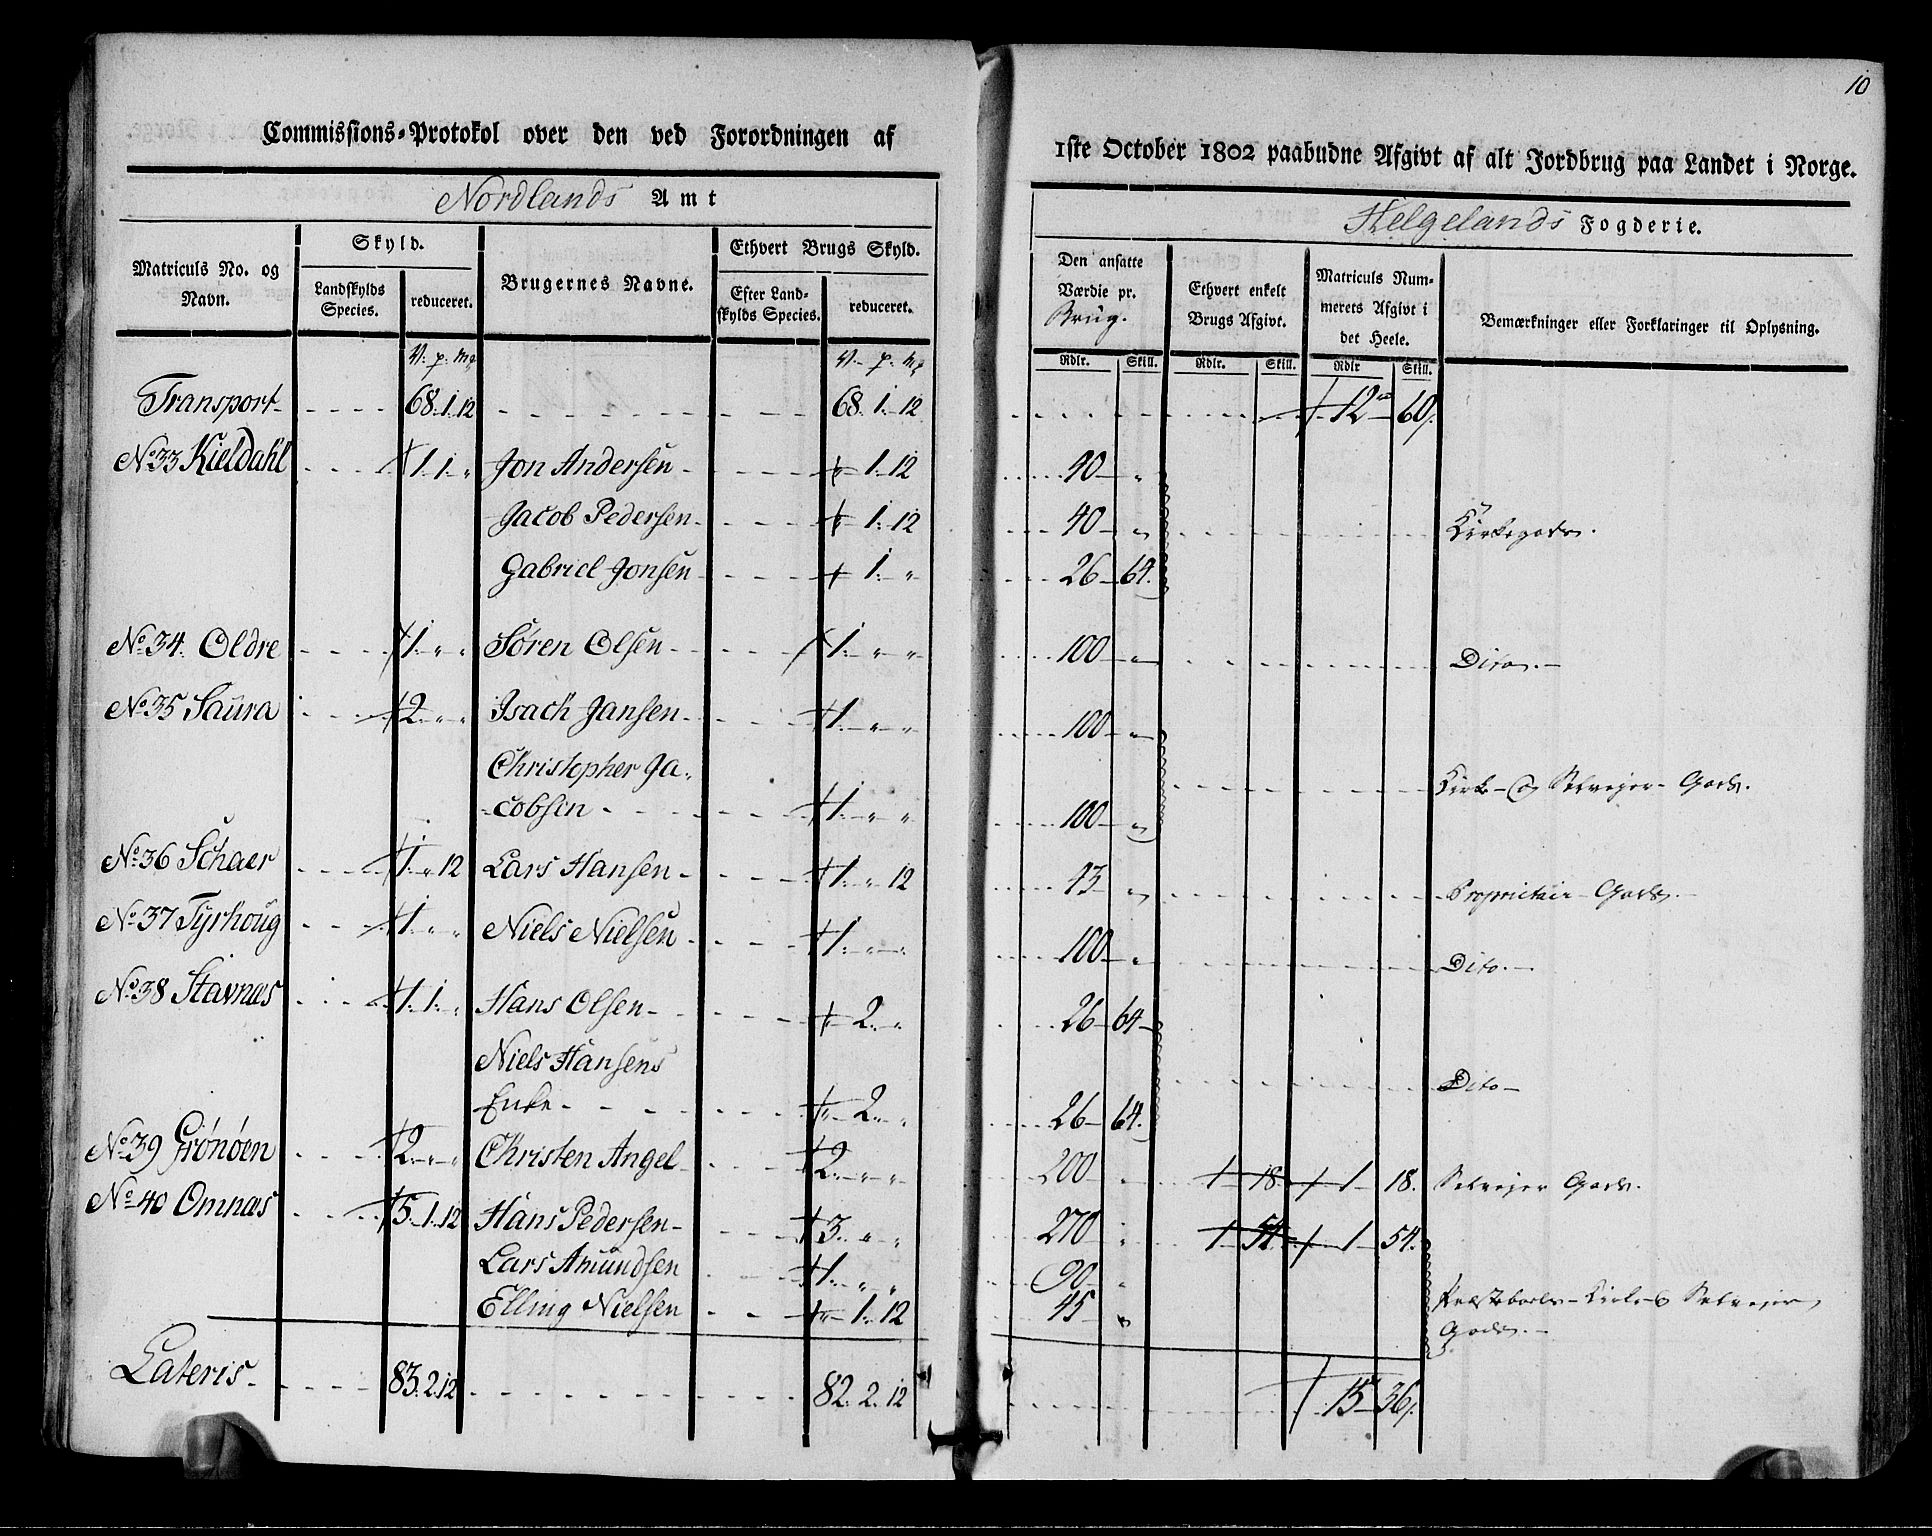 10
Commissions-Protokol over den ved Forordningen af
1ste October 1802 paabudne Afgivt af alt Jordbrug paa Landet i Norge.
Nordlands Amt
Helgelands Fogderie.
Matriculs No. og Navn.
Skyld.
Landskylds Species.
reduceret.
Brugernes Navne.
Ethvert Brugs Skyld.
Efter Landskylds Species.
reduceret.
Den ansatte Værdie pr. Brug.
Ethvert enkelt Brugs Afgivt.
Matriculs Nummerets Afgivt i det Heele.
Bemærkninger eller Forklaringer til Oplysning.
V. p. Mk V. p. Mk Rdlr. Skill. Rdlr. Skill. Rdlr Skill.
Transport 68. 1. 12 68. 1. 12 12 60.
No 33 Kieldahl 1. 1. " Jon Andersen " 1. 12 40 "
Jacob Pedersen " 1. 12 40 " Kirkegods.
Gabriel Jonsen 1. " 26 64.
No 34. Oldre 1. " " Sören Olsen 1. " " 100 " Dito.
No 35 Saura 2. " " Isach Jansen 1. " " 100 "
Christopher Ja-
cobsen 1. " " 100 " Kirke- og Selvejer- Gods.
No 36 Schaer 1. " 12 Lars Hansen 1. " 12 43 " Proprietair Gods.
No 37 Tyrhoug 1. " " Niels Nielsen 1. " " 100 " Dito.
No 38 Stavnæs 1. 1. " Hans Olsen " 2. " 26 64
Niels Hansens
Enke " 2. " 26 64. Dito
No 39 Grönöen 2. " " Christen Angel 2. " " 200 " 1 18 1 18. Selvejer Gods.
No 40 Omnæs 5. 1. 12 Hans Pedersen 3. " " 270 " 1 54. 1 54.
Lars Amundsen 1. " " 90 "
Elling Nielsen " 1. 12 45 " Præstebols- Kirke- & Selvejer
Gods.
Lateris 83. 2. 12 82. 2. 12 15 36.